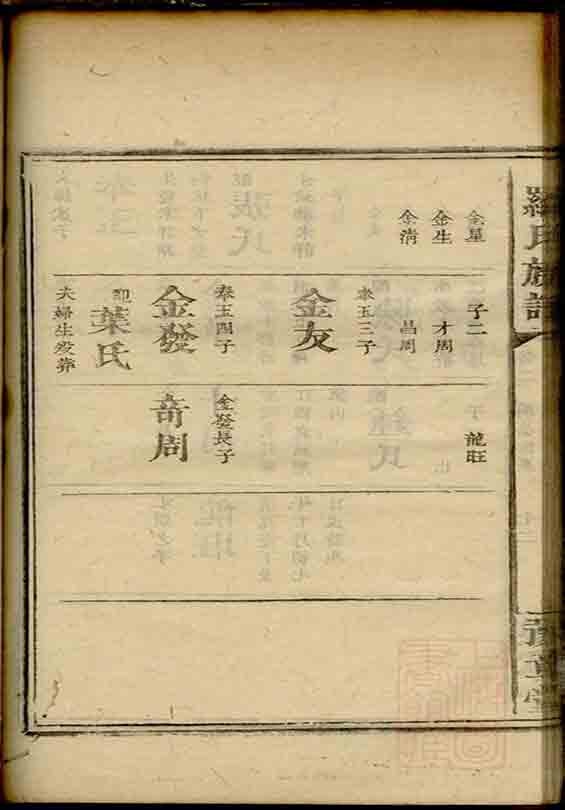 羅氏族譜
金星
金生
金清
子二
才周
昌周
奉玉三子
金友
奉玉四子
金發
配
葉氏
夫婦生歿葬
子
龍旺
金發長子
奇周
豫章堂